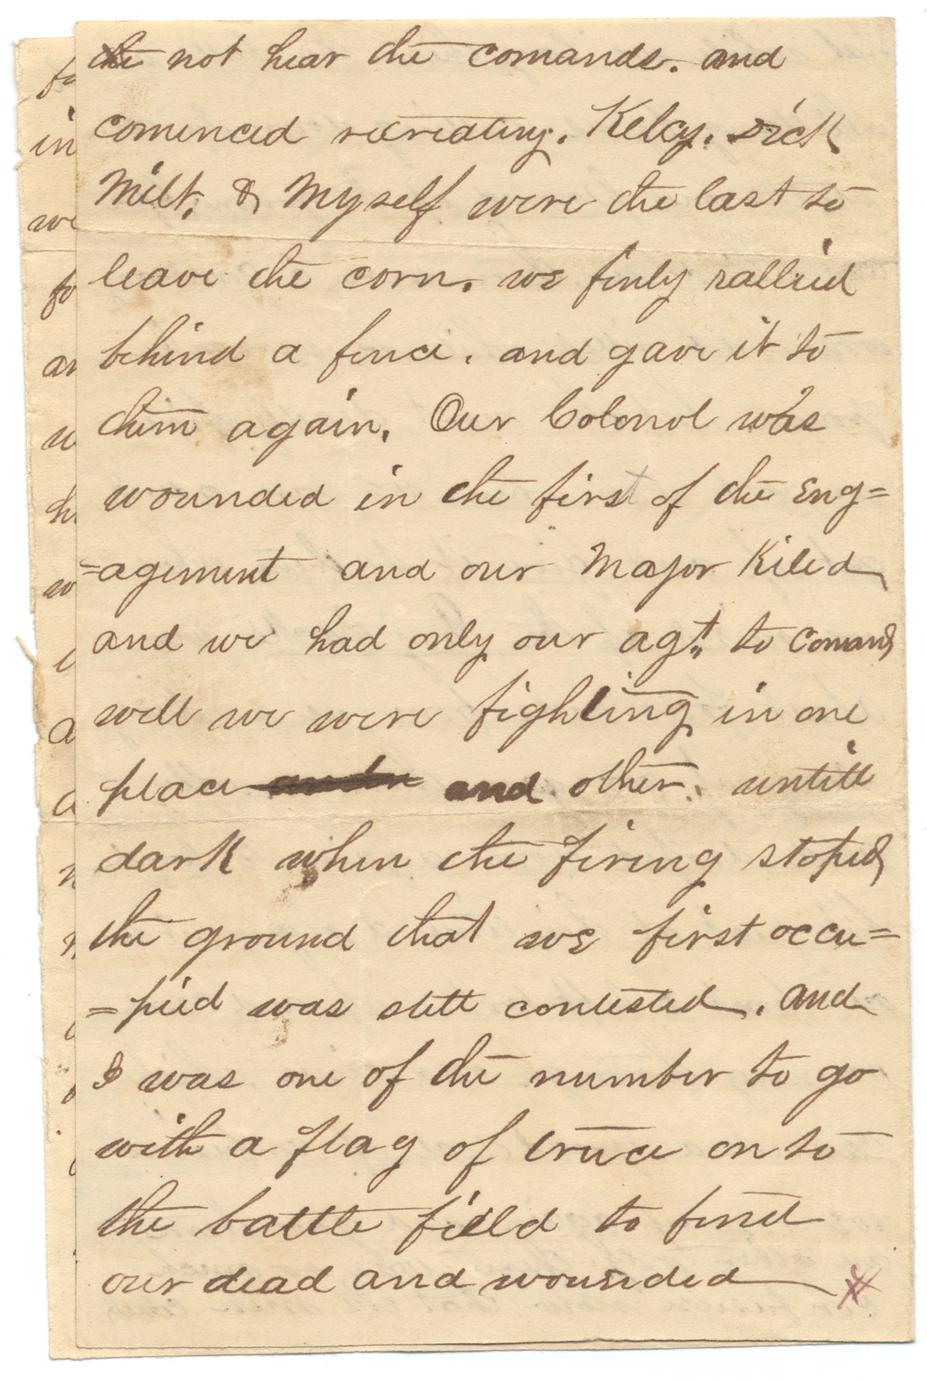 the not hear the comands. and
comenced retreating. Kelcy. Dick
Milt. & Myself were the last to
leave the corn. we finly rallied
behind a fence. and gave it to
them again. Our Colonol was
wounded in the first of the Eng=
=agement and our Major Kiled
and we had only our agt. to comand
well we were fighting in one
place and other. untill
dark when the firing stoped
the ground that we first occu=
=pied was still contested. and
I was one of the number to go
with a flag of truce on to
the battle field to find
our dead and wounded
fo
in
we
fo
an